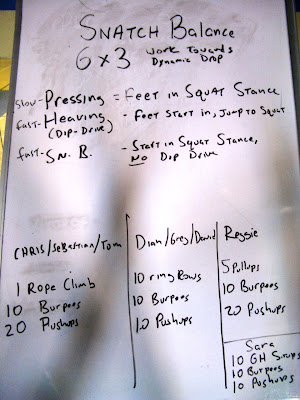 SNATCH BALANCE
6x3 WORK TOWARDS
DYNAMIC DROP
SLOW-PRESSING = FEET IN SQUAT STANCE
FAST-HEAVING - FEET START IN, JUMP TO SQUAT
(DIP-DRIVE)
FAST-SN. B. - START IN SQUAT STANCE,
NO DIP DRIVE
CHRIS/SEBASTIAN/TOM
1 ROPE CLIMB
10 BURPEES
20 PUSHUPS
Dian/Greg/David
10 ring ROWS
10 BURPEES
10 PUSHUPS
Reggie
5 Pullups
10 BURPEES
20 PUSHUPS
SARA
10 GH SITUPS
10 BURPEES
10 PUSHUPS